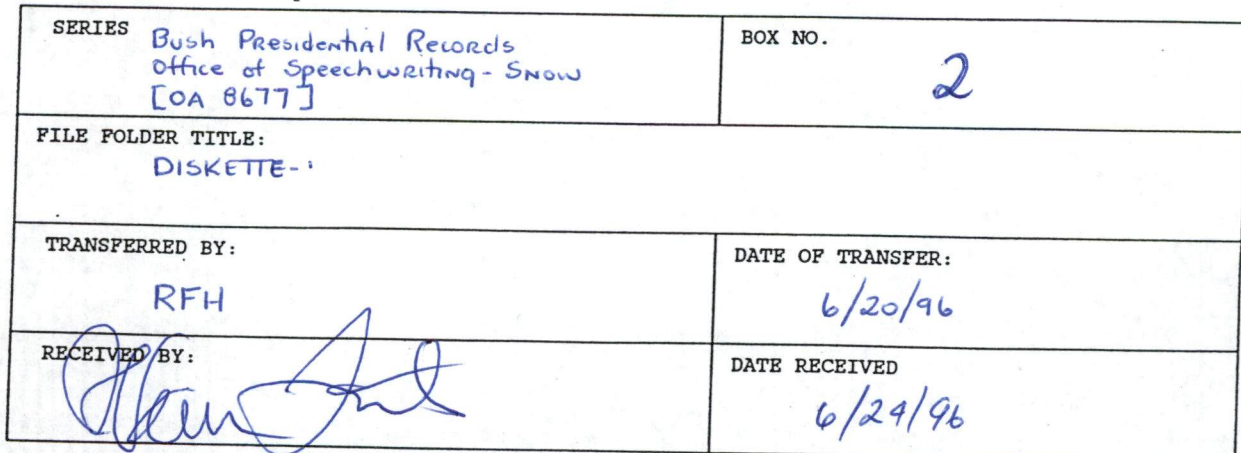 SERIES Bush Presidential Records
Office of Speechwriting - Snow
[OA 8677]
BOX NO.
2
FILE FOLDER TITLE:
DISKETTE-
TRANSFERRED BY:
RFH
DATE OF TRANSFER:
6/20/96
RECEIVED BY:
DATE RECEIVED
6/24/96